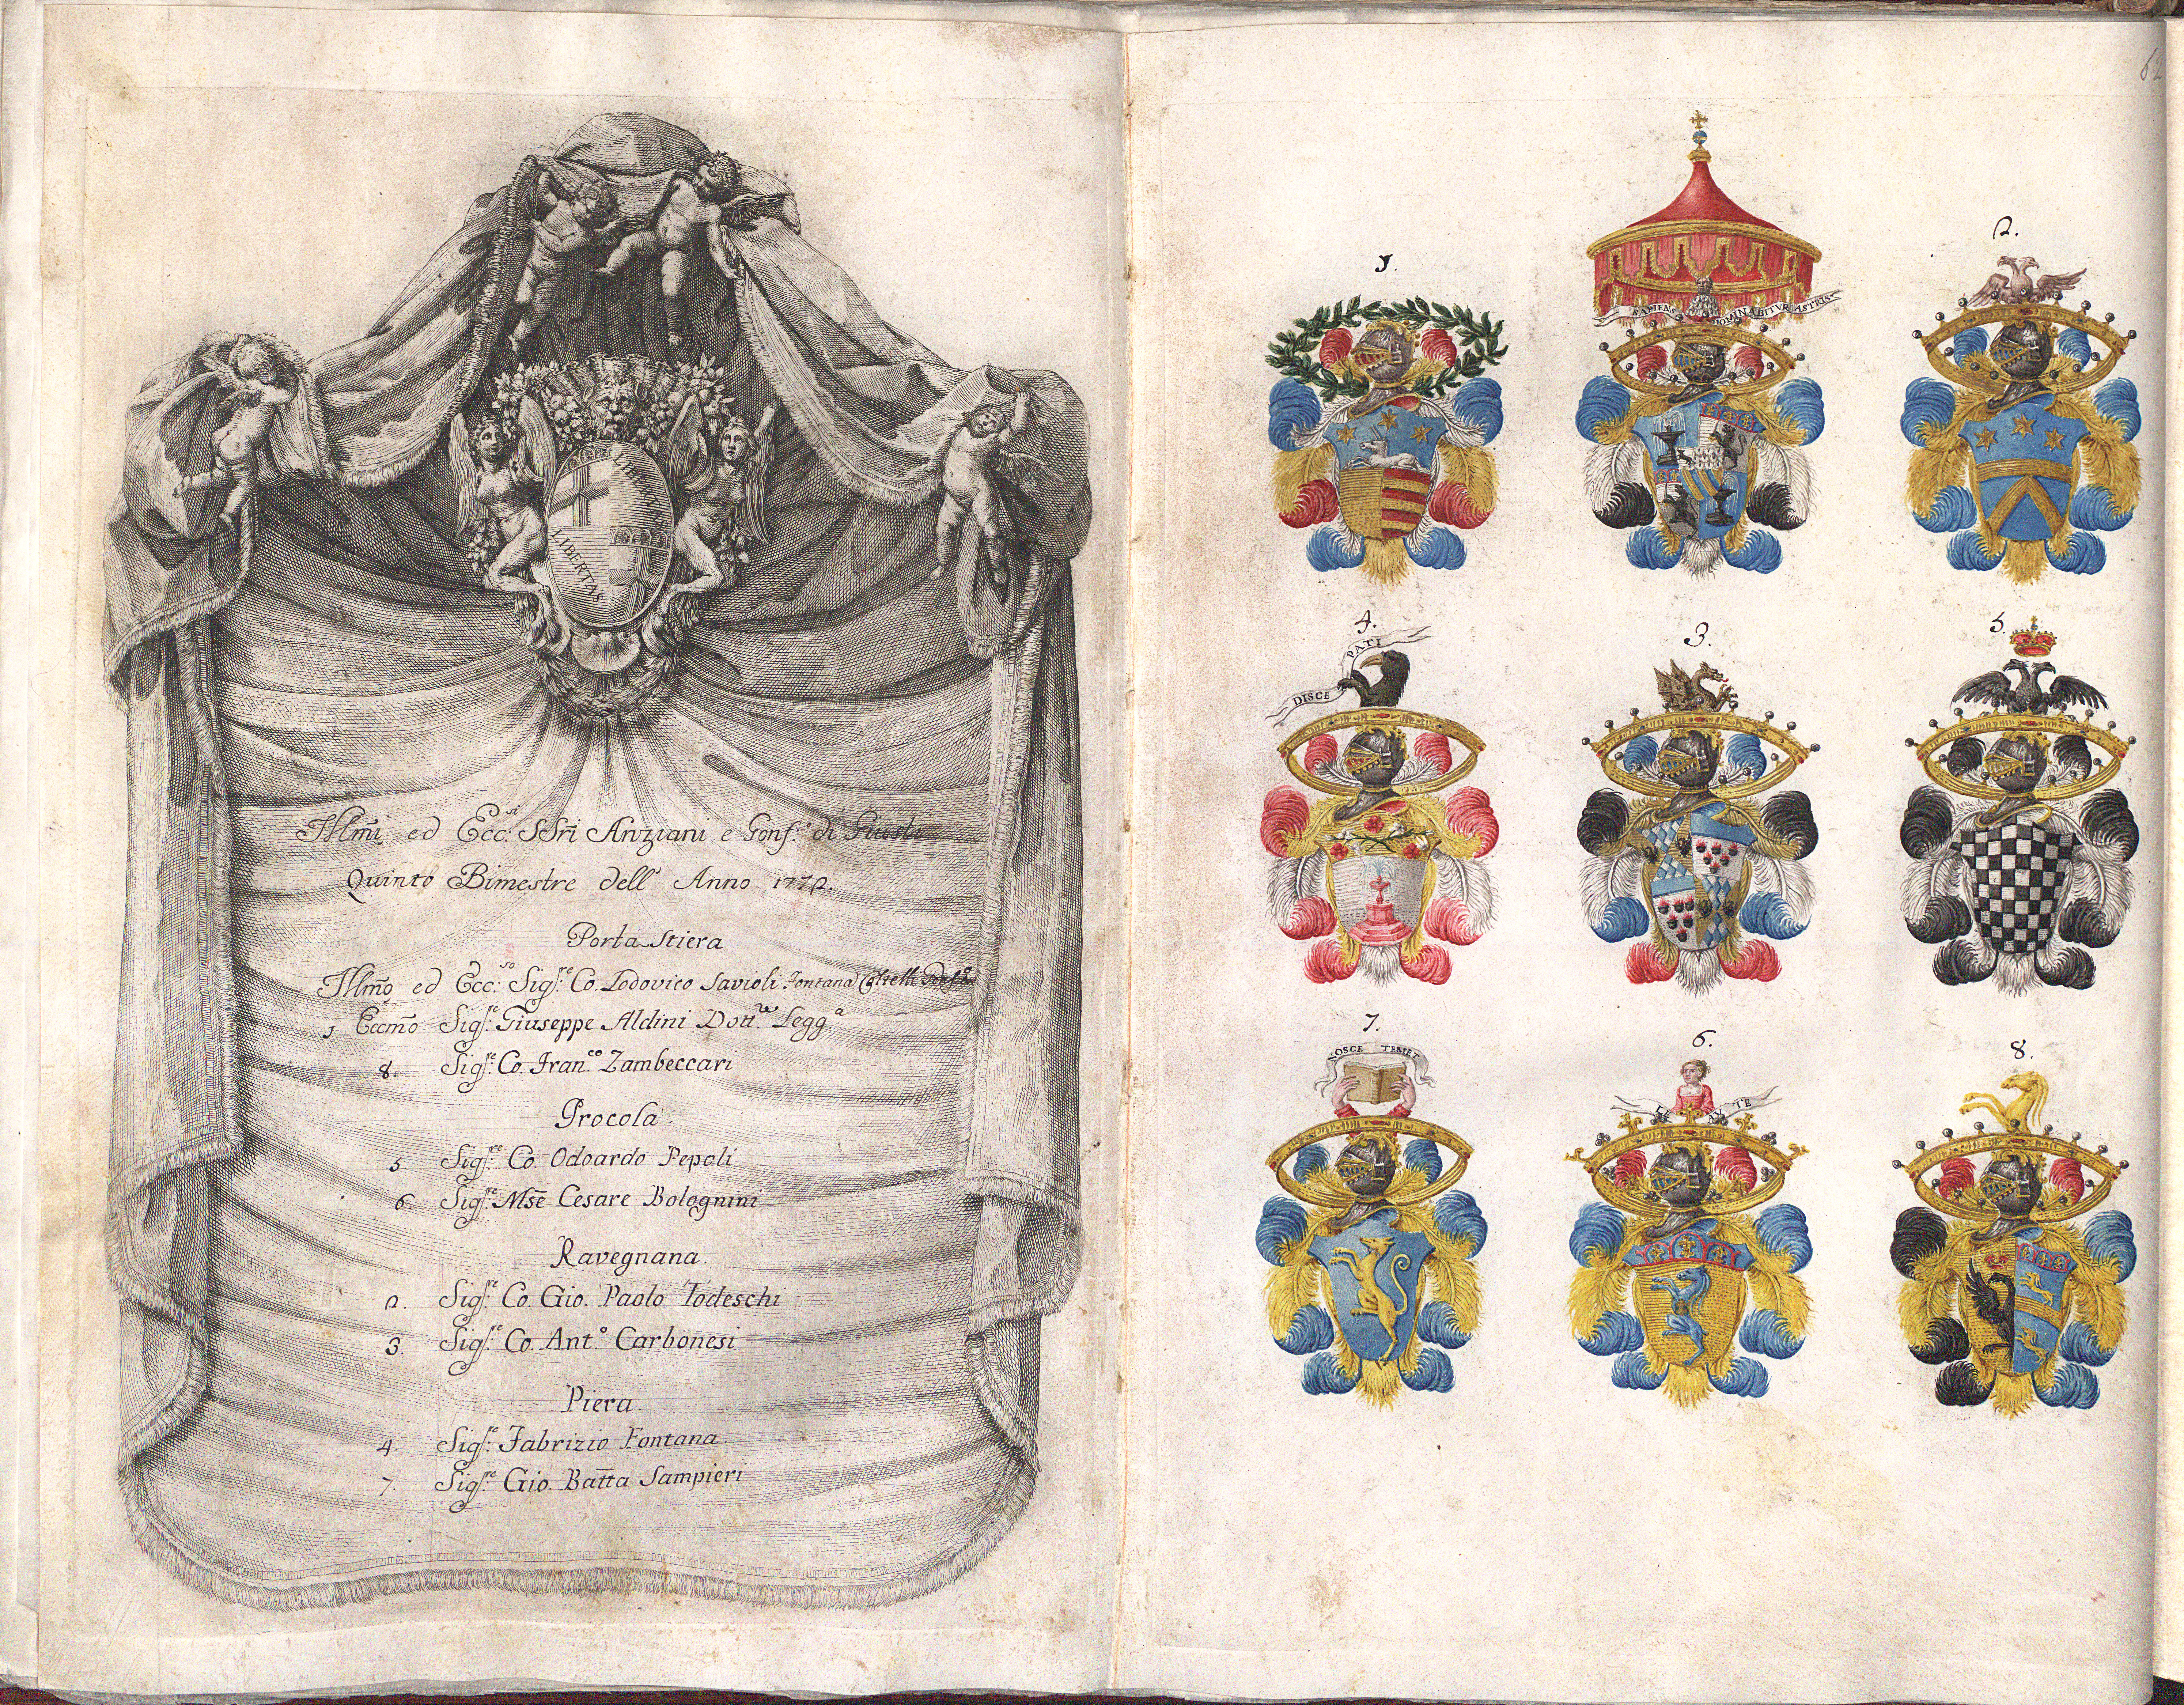 LIBERTAS
LIBERTAS
Illm̃i ed Ecc:si SSr̃i Anziani e Gonf.e di Giusti
Quinto Bimestre dell' Anno 1772.
Porta Stiera
Illm̃o ed Ecc:so Sigs:re Co. Lodovico Savioli Fontana Coltelli Gonf.e
1 Eccm̃o Sigs:re Giuseppe Aldini Dott.re Legg.a
8. Sigs:re Co. Fran.co Zambeccari
Procola.
5. Sigs:re Co. Odoardo Pepoli
6. Sigs:re Mse Cesare Bolognini
Ravegnana.
2. Sigs:re Co. Gio. Paolo Todeschi
3. Sigs:re Co. Ant.o Carbonesi
Piera.
4. Sigs:re Fabrizio Fontana.
7. Sigs:re Gio. Batt̃a Sampieri
62
1.
SAPIENS DOMINABITVR ASTRIS
2.
4.
DISCE PATI
3.
5.
7.
NOSCE TEMET
6.
8.